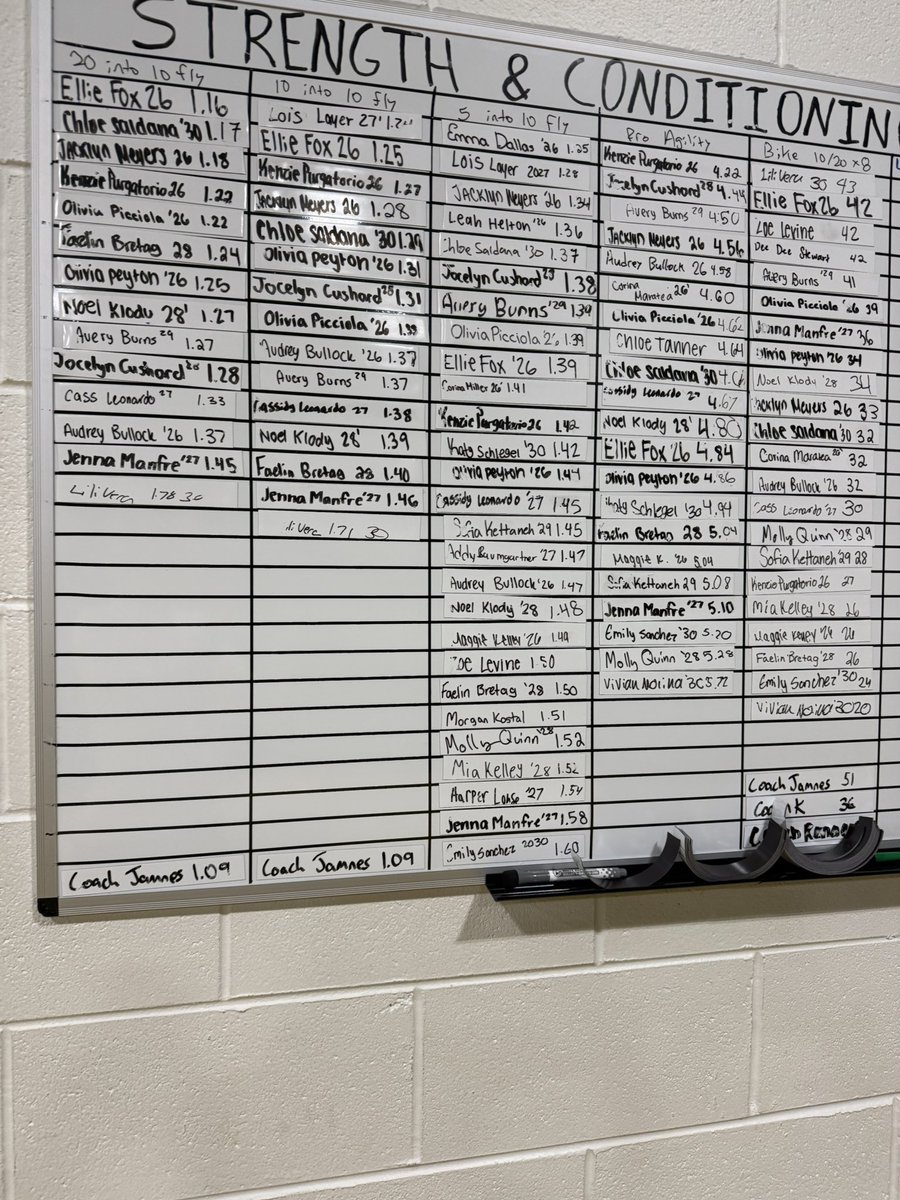 STRENGTH & CONDITIONING
20 into 10 fly
Ellie Fox 26 1.16
Chloe Saldana '30 1.17
Jacklyn Meyers 26 1.18
Kenzie Purgatorio 26 1.22
Olivia Picciola '26 1.22
Faelin Bretag 28 1.24
Olivia Peyton '26 1.25
Noel Klody 28' 1.27
Avery Burns 29 1.27
Jocelyn Cushard 28 1.28
Cass Leonardo 27 1.33
Audrey Bullock '26 1.37
Jenna Manfre '27 1.45
Lili Vera 1.78 30
Coach Jamnes 1.09
10 into 10 fly
Lois Layer 27'
Ellie Fox 26 1.25
Kenzie Purgatorio 26 1.27
Jacklyn Meyers 26 1.28
Chloe Saldana '30 1.29
Olivia Peyton '26 1.31
Jocelyn Cushard 28 1.31
Olivia Picciola '26
Audrey Bullock '26 1.37
Avery Burns 29 1.37
Cassidy Leonardo 27 1.38
Noel Klody 28' 1.39
Faelin Bretag 28 1.40
Jenna Manfre '27 1.46
Lili Vera 1.71 30
Coach Jamnes 1.09
5 into 10 Fly
Emma Dallas '26 1.25
Lois Layer 2027 1.28
Jacklyn Meyers '26 1.34
Leah Helton '26 1.36
Chloe Saldana '30 1.37
Jocelyn Cushard 1.38
Avery Burns '29 1.39
Olivia Picciola '26 1.39
Ellie Fox '26 1.39
Corina Miller 26 1.41
Kenzie Purgatorio 26 1.42
Katy Schlegel '30 1.42
Olivia Peyton '26 1.44
Cassidy Leonardo '27 1.45
Sofia Kettaneh 29 1.45
Addy Baumgartner 27 1.47
Audrey Bullock '26 1.47
Noel Klody '28 1.48
Maggie Kelley '26 1.49
Zoe Levine 1.50
Faelin Bretag '28 1.50
Morgan Kostal 1.51
Molly Quinn '28 1.52
Mia Kelley '28 1.52
Harper '27 1.54
Jenna Manfre '27 1.58
Emily Sanchez 2030 1.60
Pro Agility
Kenzie Purgatorio 26 4.22
Jocelyn Cushard 28
Avery Burns 29 4.50
Jacklyn Meyers 26 4.56
Audrey Bullock 26 4.58
Corina 26' 4.60
Olivia Picciola '26 4.62
Chloe Tanner 4.64
Chloe Saldana '30
Cassidy Leonardo 27 4.67
Noel Klody 28' 4.80
Ellie Fox '26 4.84
Olivia Peyton '26 4.86
Katy Schlegel '30 4.94
Faelin Bretag 28 5.04
Maggie K. '26 5.04
Sofia Kettaneh 29 5.08
Jenna Manfre '27 5.10
Emily Sanchez '30 5.20
Molly Quinn '28 5.28
Vivian '30 5.72
Bike 10/20 x8
Lili Vera 30 43
Ellie Fox 26 42
Zoe Levine 42
Dee Dee Stewart 42
Avery Burns '29 41
Olivia Picciola '26 39
Jenna Manfre '27 36
Olivia Peyton '26 34
Noel Klody '28 34
Jacklyn Meyers 26 33
Chloe Saldana '30 32
Corina 26' 32
Audrey Bullock '26 32
Cass Leonardo '27 30
Molly Quinn '28 29
Sofia Kettaneh '29 28
Kenzie Purgatorio 26 27
Mia Kelley '28 26
Maggie Kelley '26 26
Faelin Bretag '28 26
Emily Sanchez '30 24
Vivian '30 20
Coach Jamnes 51
K 36